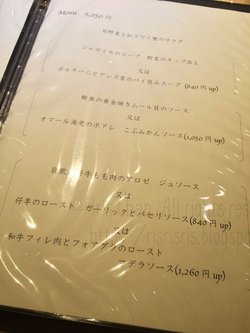 Menu 5,250円
旬野菜と紅ズワイ蟹のサラダ
ジャガイモのスープ 野菜のチップ添え
又は
ポルチーニとアンズ茸のパイ包みスープ(840円up)
鮮魚の黄金焼きムール貝のソース
又は
オマール海老のポアレ こぶみかんソース(1,050円up)
牛もも肉のアロゼ ジュソース
又は
仔羊のロースト ガーリックとパセリソース(840円up)
又は
和牛フィレ肉とフォアグラのロースト
マデラソース(1,260円up)